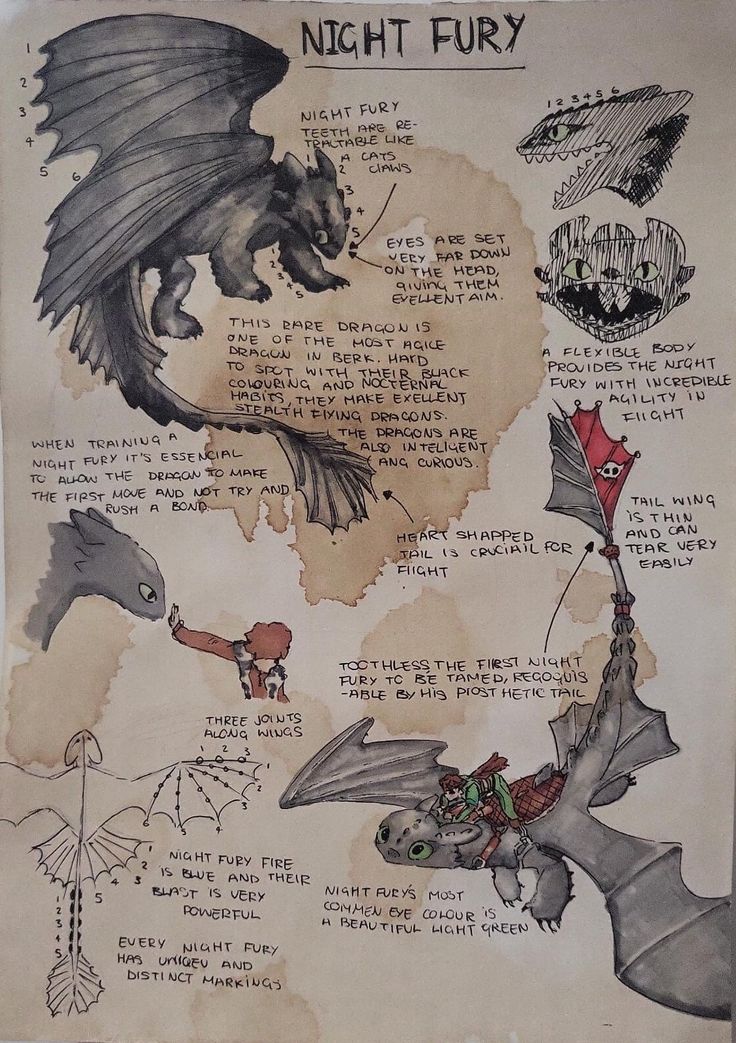 NIGHT FURY
NIGHT FURY
TEETH ARE RE-
TRACTABLE LIKE
A CATS
CLAWS
1
2
3
4
5
6
1
2
3
4
5
1
2
3
4
5
1 2 3 4 5 6
EYES ARE SET
VERY FAR DOWN
ON THE HEAD,
GIVING THEM
EXELLENT AIM.
THIS RARE DRAGON IS
ONE OF THE MOST AGILE
DRAGON IN BERK. HARD
TO SPOT WITH THEIR BLACK
COLOURING AND NOCTERNAL
HABITS, THEY MAKE EXELLENT
STEALTH FLYING DRAGONS.
THE DRAGONS ARE
ALSO INTELIGENT
AND CURIOUS.
A FLEXIBLE BODY
PROVIDES THE NIGHT
FURY WITH INCREDIBLE
AGILITY IN
FLIGHT
WHEN TRAINING A
NIGHT FURY IT'S ESSENCIAL
TO ALLOW THE DRAGON TO MAKE
THE FIRST MOVE AND NOT TRY AND
RUSH A BOND.
HEART SHAPPED
TAIL IS CRUCIAIL FOR
FLIGHT
TAIL WING
IS THIN
AND CAN
TEAR VERY
EASILY
TOOTHLESS THE FIRST NIGHT
FURY TO BE TAMED, REGOQUIS
-ABLE BY HIS PROSTHETIC TAIL
THREE JOINTS
ALONG WINGS
1 2 3
1
2
3
4
5
6
1
2
3
4
5
1
2
3
4
5
NIGHT FURY FIRE
IS BLUE AND THEIR
BLAST IS VERY
POWERFUL
EVERY NIGHT FURY
HAS UNIQEU AND
DISTINCT MARKINGS
NIGHT FURY'S MOST
COMMEN EYE COLOUR IS
A BEAUTIFUL LIGHT GREEN